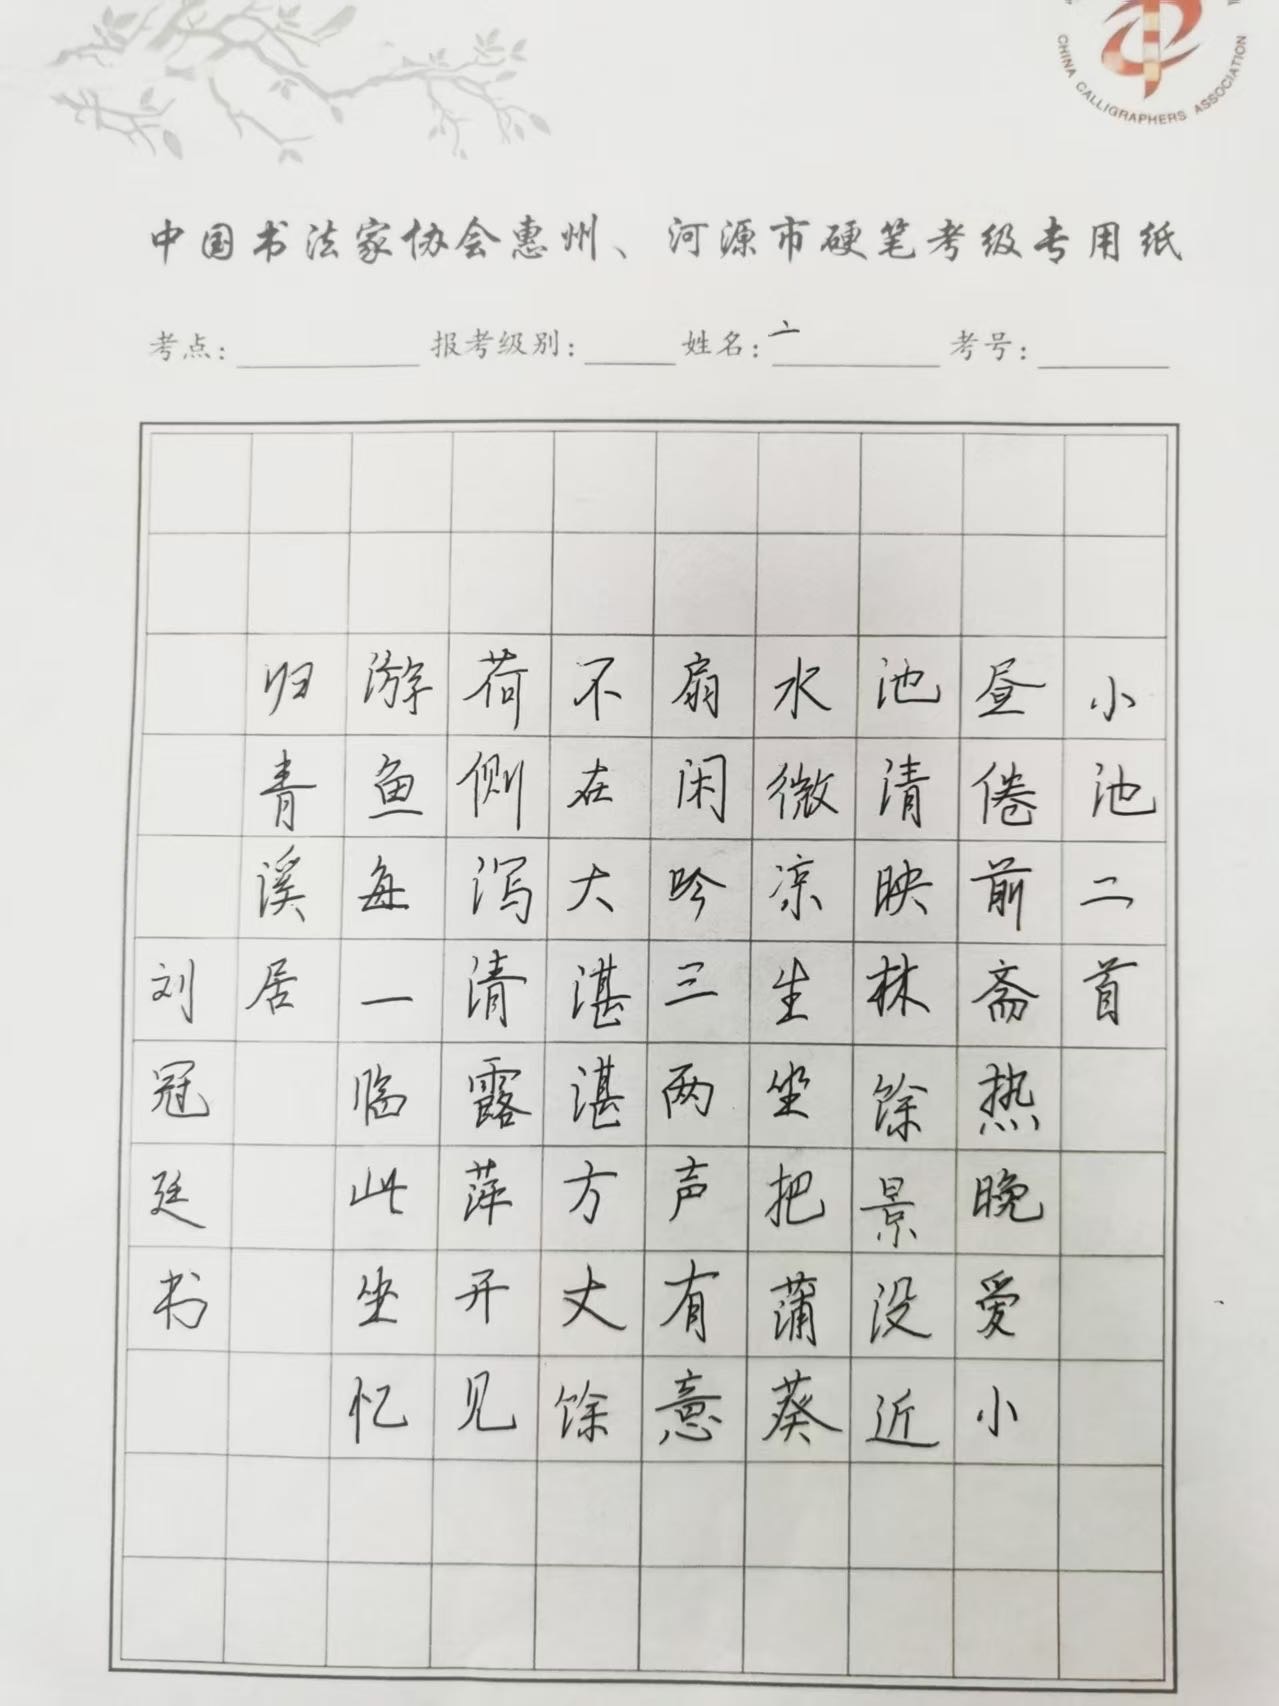 CHINA CALLIGRAPHERS ASSOCIATION
中国书法家协会惠州、河源市硬笔考级专用纸
考点: 报考级别: 姓名: 考号:
小池二首
昼倦前斋热晚爱小
池清映林馀景没近
水微凉生坐把蒲葵
扇闲吟三两声有意
不在大湛湛方丈馀
荷侧泻清露萍开见
游鱼每一临此坐忆
归青溪居
刘冠廷书